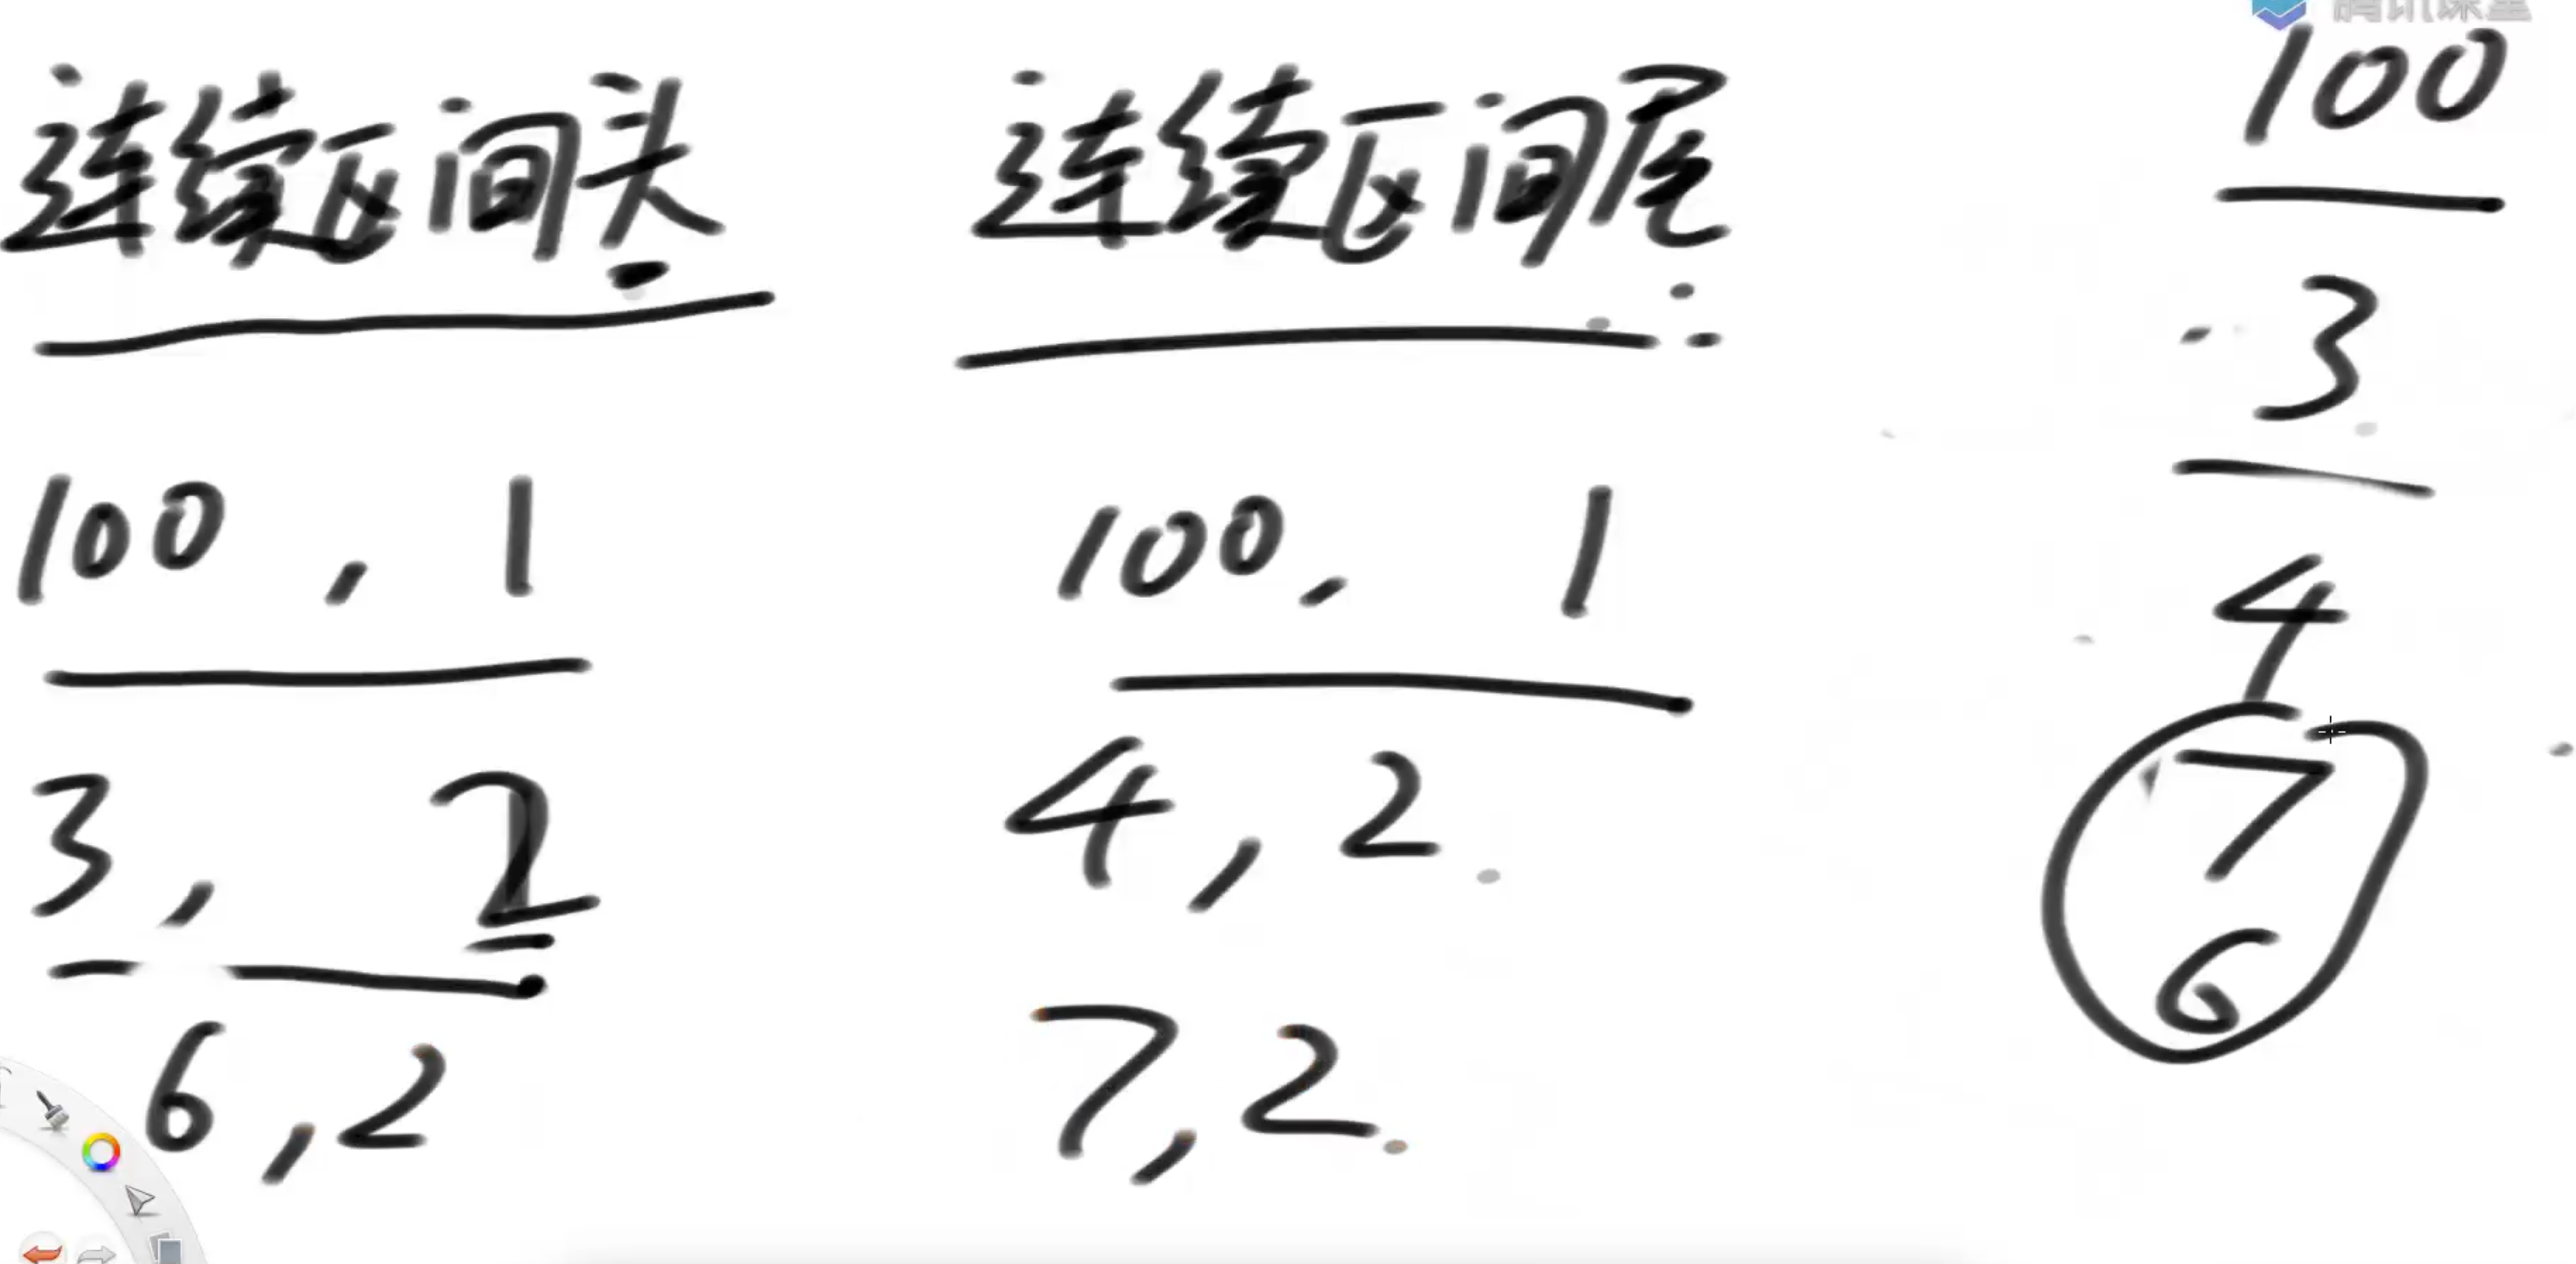 腾讯课堂
连续区间头
100 , 1
3 , 2
6 , 2
连续区间尾
100 , 1
4 , 2
7 , 2
100
3
4
7
6